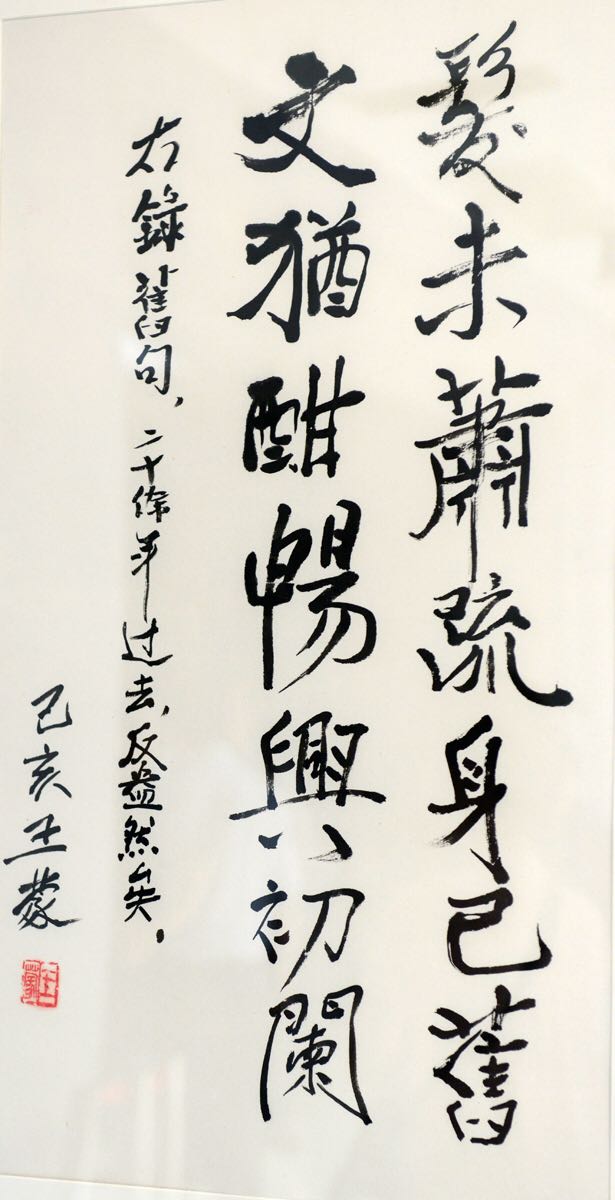 髮未蕭疏身已舊
文猶酣暢興初闌
右錄舊句，二十馀年过去，反益然矣，
己亥王蒙
王蒙